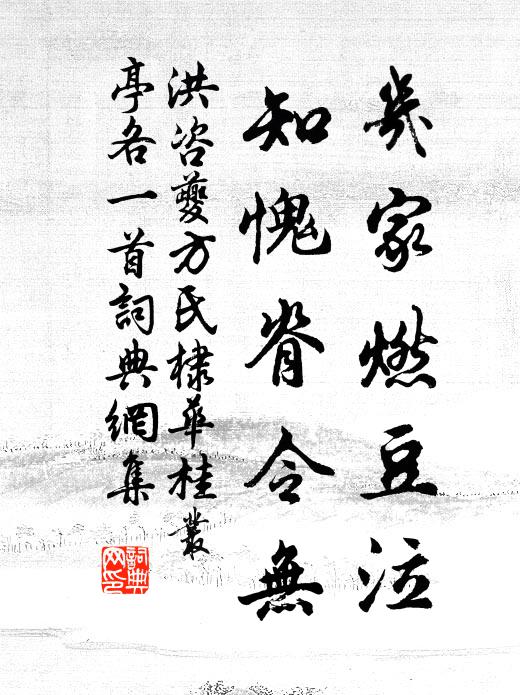 幾家燃豆泣
知愧脊令無
洪咨夔方氏棣華桂叢
亭各一首詞典網集
詞典
网印